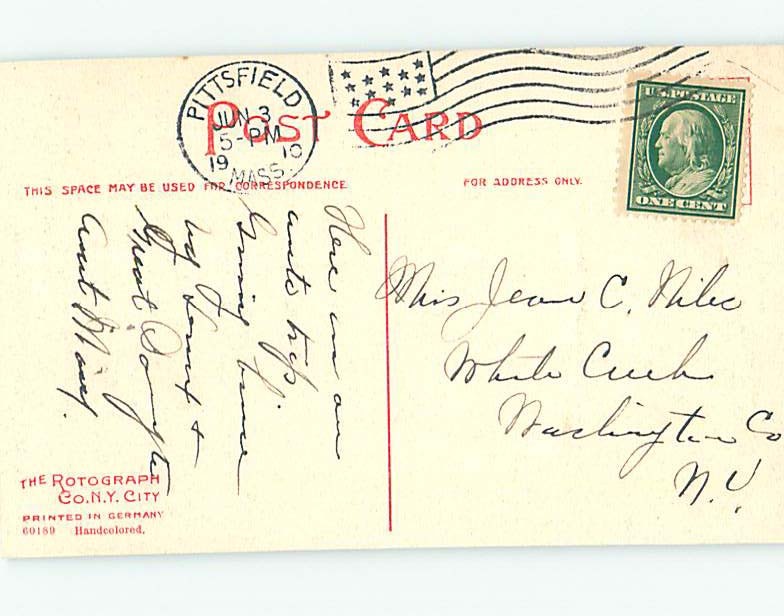 PITTSFIELD
JUN 3
5-PM
19 10
MASS.
POST CARD
U.S. POSTAGE
ONE CENT
THIS SPACE MAY BE USED FOR CORRESPONDENCE
FOR ADDRESS ONLY.
Here on an
auto trip.
Going home
by Lenox &
Great Barrington
Aunt Mary.
Miss Jean C. Niles
White Creek
Washington Co
N.Y.
THE ROTOGRAPH
CO. N.Y. CITY
PRINTED IN GERMANY
60189 Handcolored.